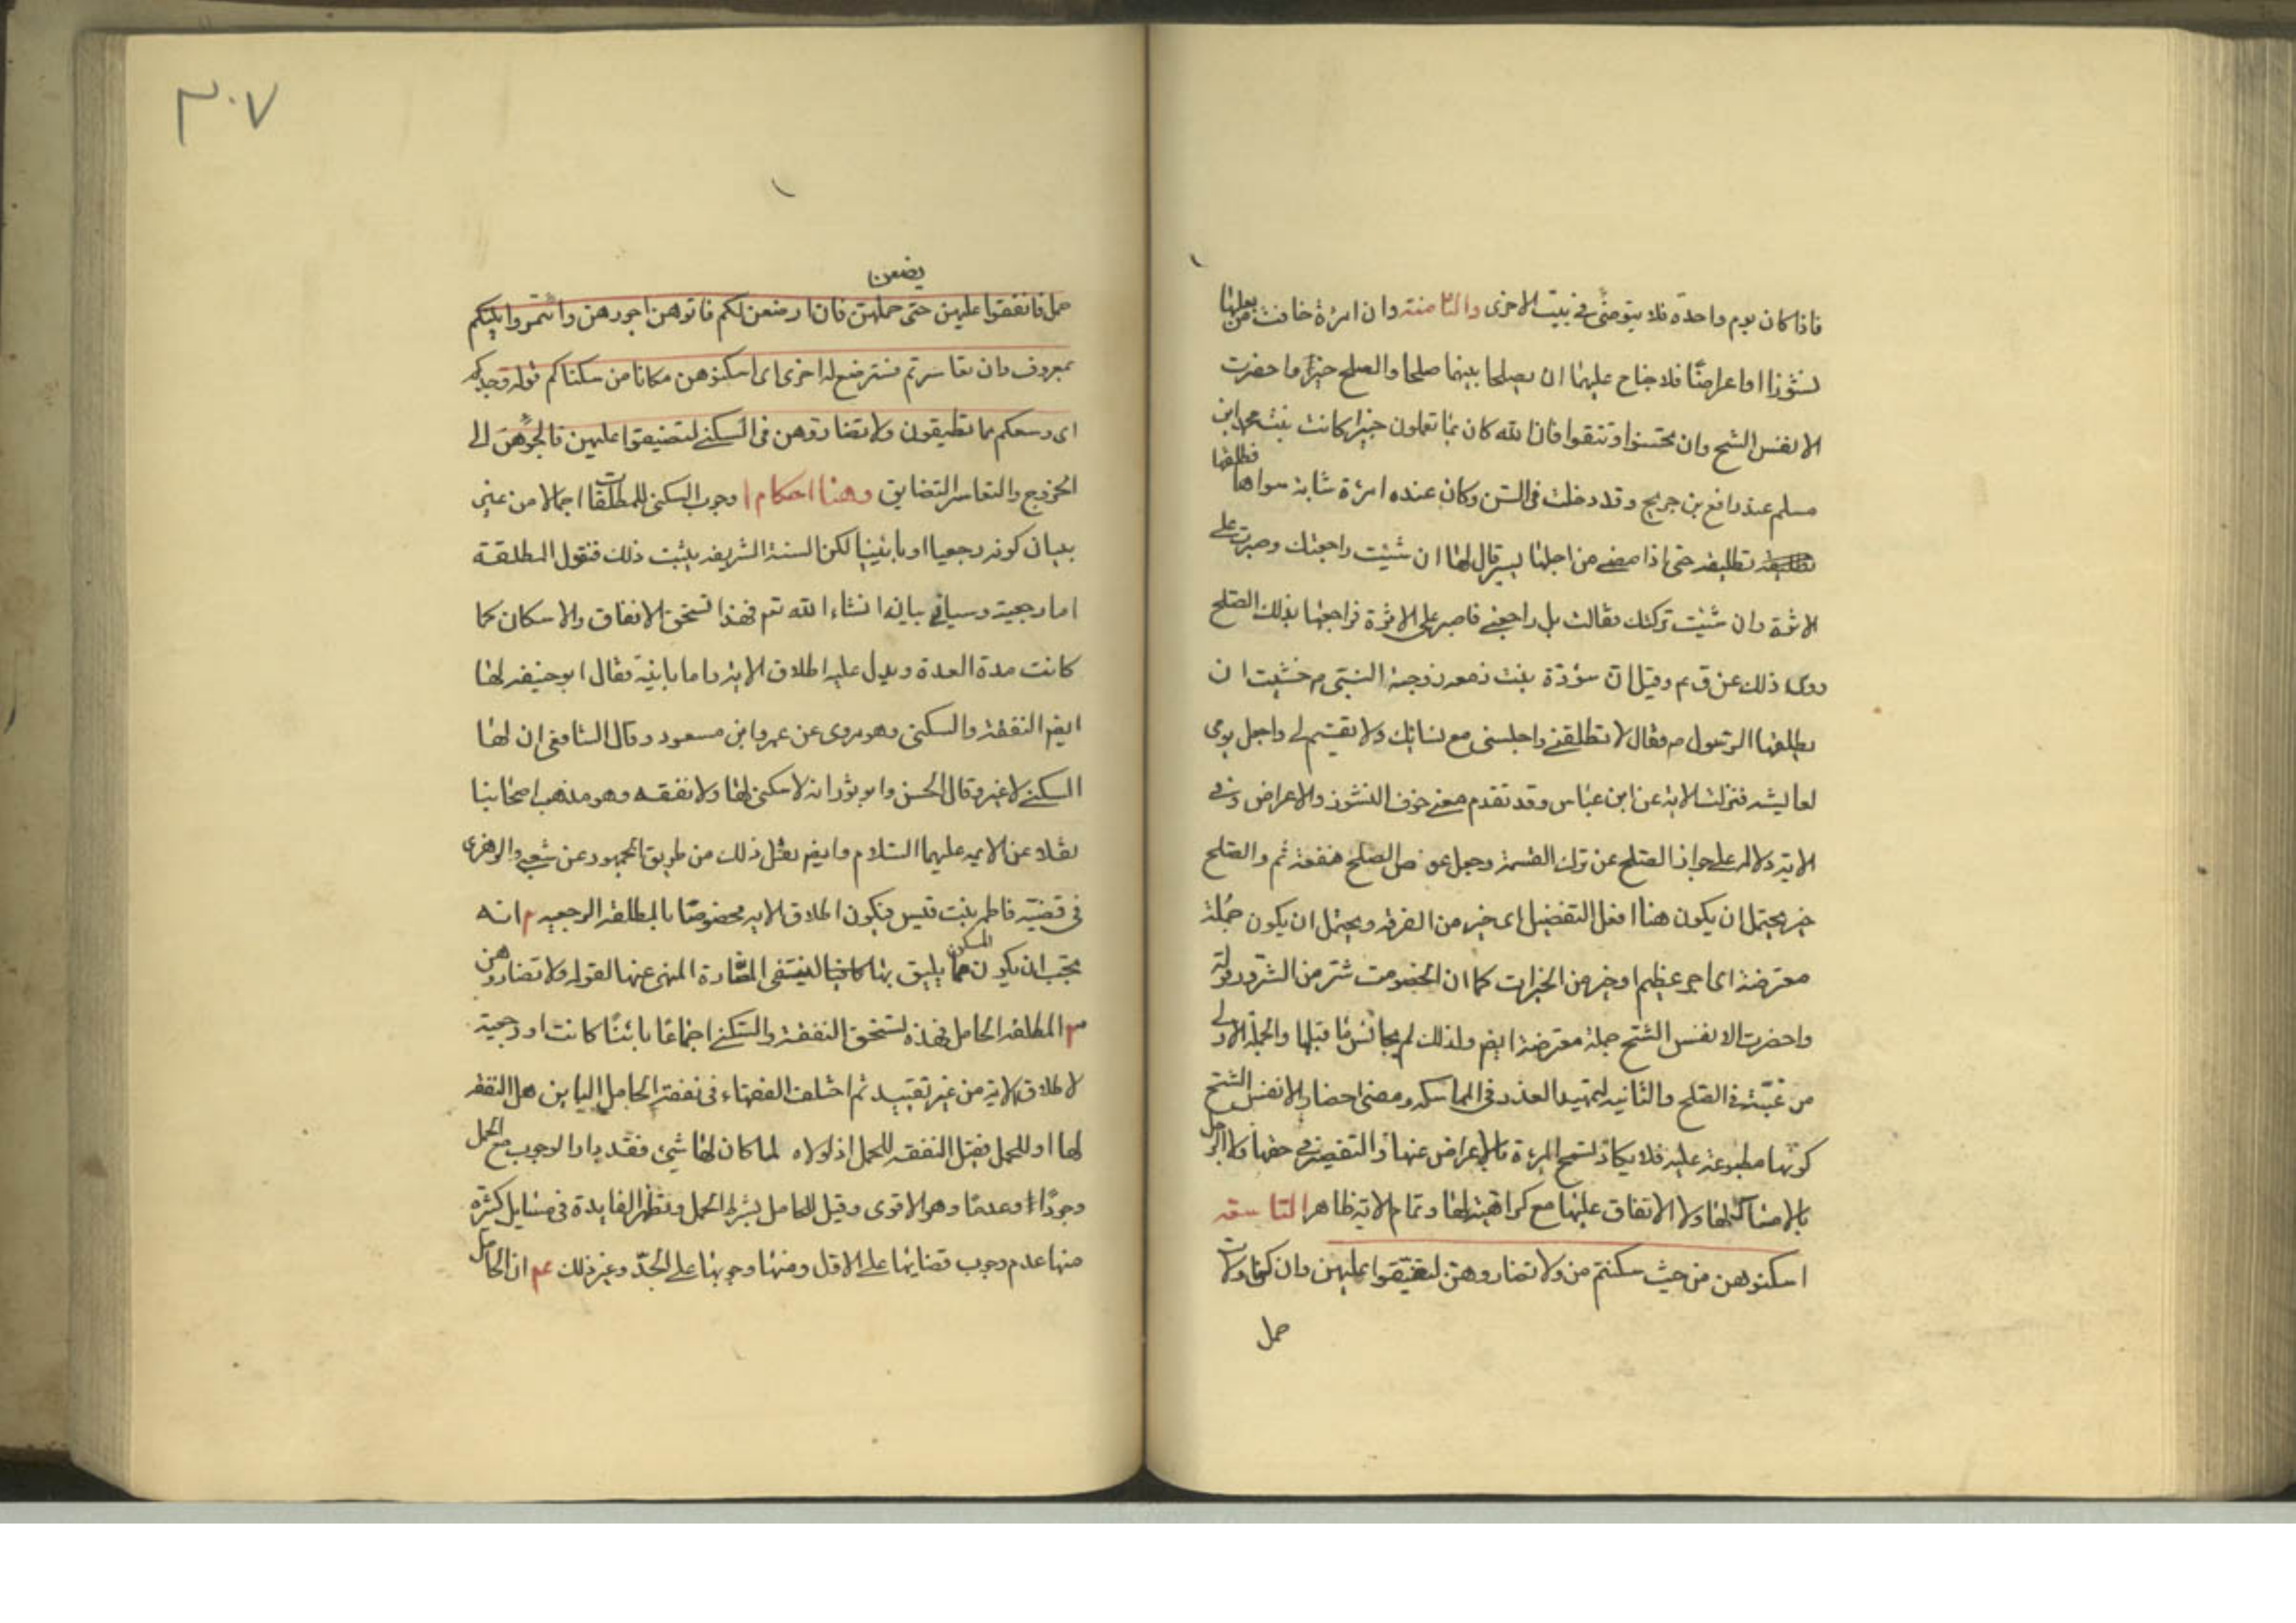 فاذا كان يوم واحدة فلا يتوضئ فى بيت الاخرى والثامنة وان امرءة خافت من بعلها
نشوزا او اعراضًا فلا جناح عليهما ان يصلحا بينهما صلحا والصلح خير واحضرت
الانفس الشح وان تحسنوا وتتقوا فان الله كان بما تعملون خبيرا كانت بنت محمد ابن
مسلم عند رافع بن جريح وقد دخلت فى السن وكان عنده امرءة شابة سواها فطلقها
تطليقه حتى اذا مضى من اجلها يسير قال لها ان شئت راجعتك وصبرت على
الاثرة وان شئت تركتك فقالت بل راجعنى فاصبر على الاثرة فراجعها بذلك الصلح
روى ذلك عن ق م وقيل ان سودة بنت زمعه زوجة النبى م خشيت ان
يطلقها الرسول م فقال لا تطلقنى واجلسنى مع نسائك ولا تقسم لى واجعل يومى
لعايشه فنزلت الاية عن ابن عباس وقد تقدم معنى خوف النشوز والاعراض وفى
الاية دلالة على جواز الصلح عن ترك القسمة وجعل عوض الصلح منفعة ثم والصلح
خير يحتمل ان يكون هنا افعل التفضيل اى خير من الفرقه ويحتمل ان يكون جملة
معترضة اى امر عظيم او خير من الخيرات كما ان الخصومت شر من الشرور وقوله
واحضرت الانفس الشح جملة معترضة ايضم ولذلك لم يجانس ما قبلها والجملة الاولى
مرغبة فى الصلح والثانيه لتمهيد العذر فى المماسكه ومعنى احضار الانفس الشح
كونها مطبوعة عليه فلا يكاد تسمح المرءة بالاعراض عنها والتقصير فى حقها ولا الرجل
بالامساك لها ولا الانفاق عليها مع كراهيته لها وتمام الاية ظاهر التاسعة
اسكنوهن من حيث سكنتم من ولا تضاروهن لتضيقوا عليهن وان كن اولات
حمل
٣٠٧
يضعن
حمل فانفقوا عليهن حتى حملهن فان ارضعن لكم فاتوهن اجورهن وائتمروا بينكم
بمعروف وان تعاسرتم فسترضع له اخرى اى اسكنوهن مكانا من سكناكم قوله وجدكم
اى وسعكم مما تطيقون ولا تضاروهن فى السكنى لتضيقوا عليهن فالجؤهن الى
الخروج والتعاسر التضايق وهنا احكام ا وجوب السكنى للمطلقات اجمالا من غير
بيان كونه رجعيا او باينيا لكن السنة الشريفه يثبت ذلك فنقول المطلقة
اما رجعية وسياتى بيانه انشاء الله تع فهذا تستحق الانفاق والاسكان كما
كانت مدة العدة ويدل عليه اطلاق الاية واما باينة فقال ابو حنيفه لها
ايضم النفقة والسكنى وهو مروى عن عمر وابن مسعود وقال الشافعى ان لها
السكنى لا غير وقال الحسن وابو ثور انه لا سكنى لها ولا نفقه وهو مذهب اصحابنا
نقلا عن الايمه عليهما السلام وايضم نقل ذلك من طريق الجمهور عن شعبى والزهرى
فى قضية فاطمه بنت قيس فيكون اطلاق الايه مخصوصًا بالمطلقه الرجعيه م انه
يجب ان يكون المسكن مما يليق بها لينتفى المضارة المنهى عنها لقوله ولا تضاروهن
٣ المطلقه الحامل فهذه تستحق النفقة والسكنى اجماعًا باينًا كانت او رجعية
لاطلاق الاية من غير تقييد ثم اختلف الفقهاء فى نفقة الحامل الباين هل النفقه
لها او للحمل فقيل النفقه للحمل اذ لولاه لما كان لها شئ فقد دار الوجوب مع الحمل
وجودًا وعدمًا وهو الاقوى وقيل للحامل بشرط الحمل وتظهر الفايدة فى مسايل كثيرة
منها عدم وجوب قضايها على الاقل ومنها وجوبها على الجدّ وغير ذلك عم ان الحامل